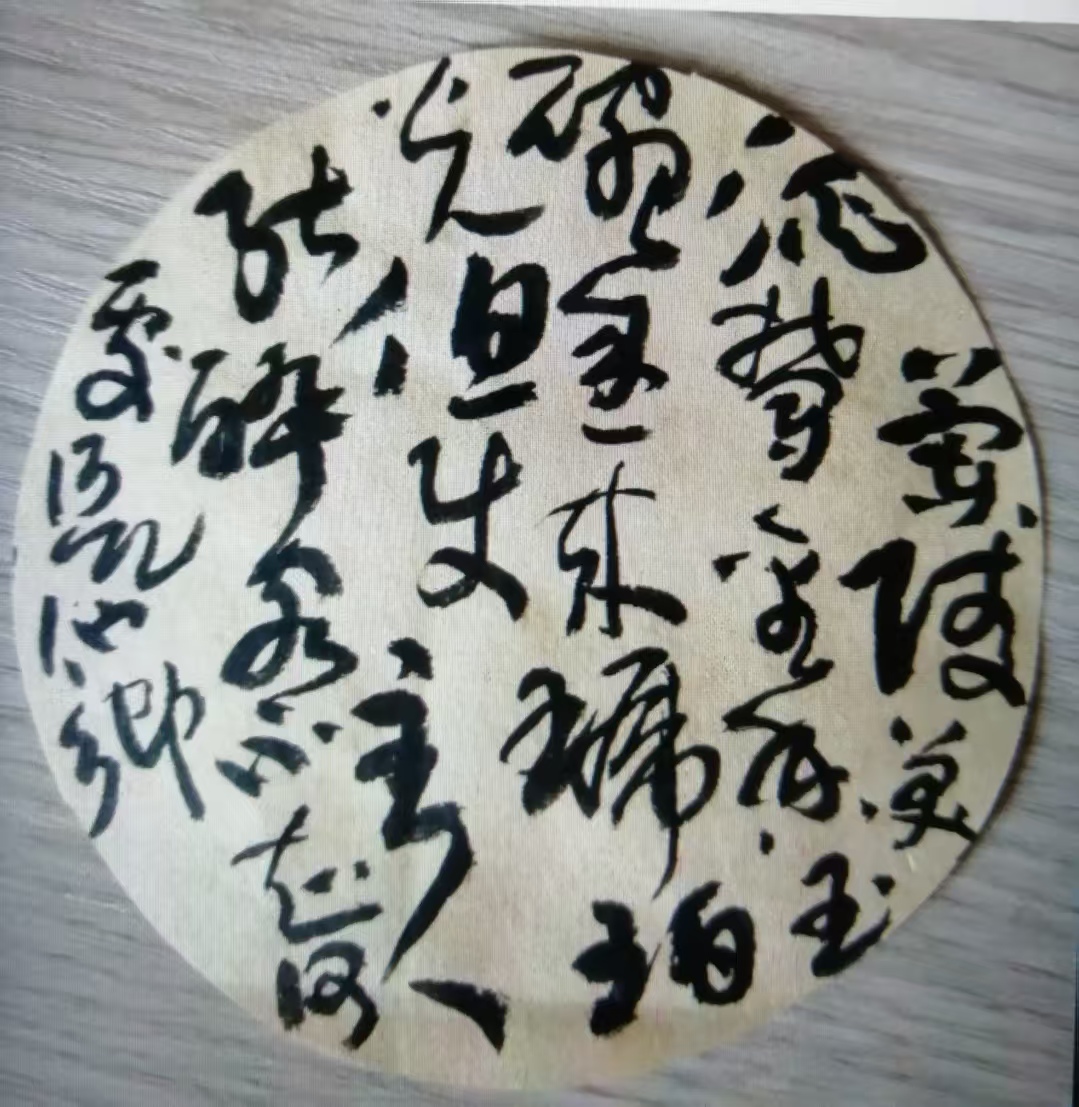 蘭陵美
酒鬱金香玉
碗盛来琥珀
光但使主人
能醉客不知何
處是他鄉